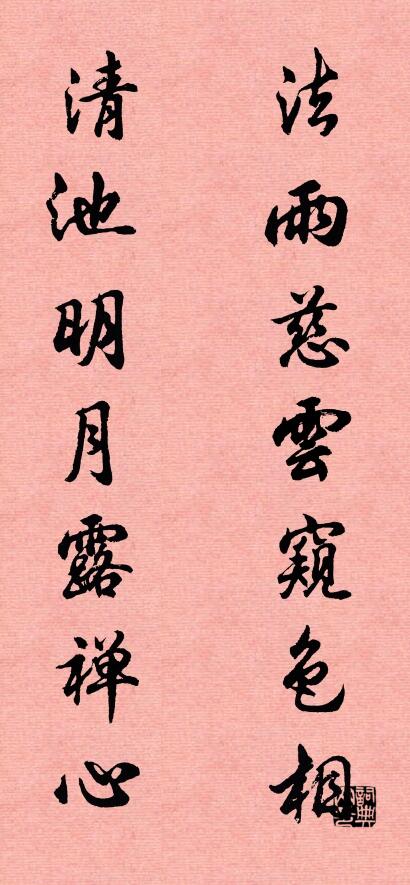 法雨慈雲窺色相
清池明月露禅心